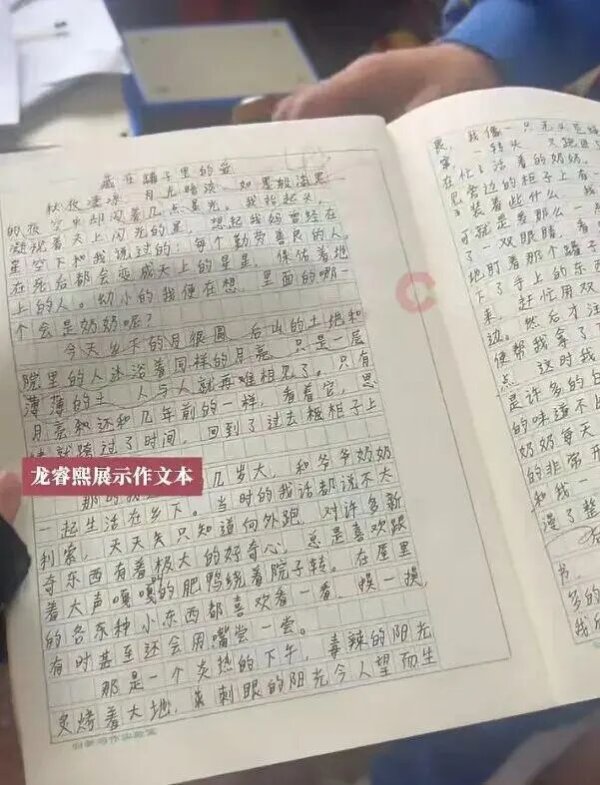 藏在罐子里的爱
秋夜凄凉，月光暗淡，如墨般漆黑
的夜空中却闪着几点星光。我抬起头，
凝视着天上闪光的星，想起我妈曾经在
星空下和我说过的：每个勤劳善良的人，
在死后都会变成天上的星星，保佑着地
上的人。幼小的我便在想，里面的哪一
个会是奶奶呢？
今天乡下的月很圆，后山的土地和
院里的人沐浴着同样的月亮，只是一层
薄薄的土，人与人就再难相见了。只有
月亮知还和几年前的一样，看着它，思
就跨过了时间，回到了过去
龙睿熙展示作文本
那
几岁大，和爷爷奶奶
一起生活在乡下。当时的我话都说不大
利索，天天只知道向外跑，对许多新
奇东西有着极大的好奇心，总是喜欢跟
着大声嘎嘎的肥鸭绕着院子转。在屋里
的各种小东西都喜欢看一看，摸一摸，
有时甚至还会用嘴尝一尝。
那是一个炎热的下午，毒辣的阳光
炙烤着大地，刺眼的阳光令人望而生
良，我像一只无头苍蝇
一转头，又跑进
在忙活着的奶奶，
旁边的柜子上有一
装着些什么，我
可就是差那么一点
了一双眼睛，看
地盯着那个罐子
下了手上的东西
来，赶忙用双
边。然后才注
便帮我拿了
点，这时我
是许多的白
的味道不
奶奶每天
的非常
和我一
漫了整
多的
我